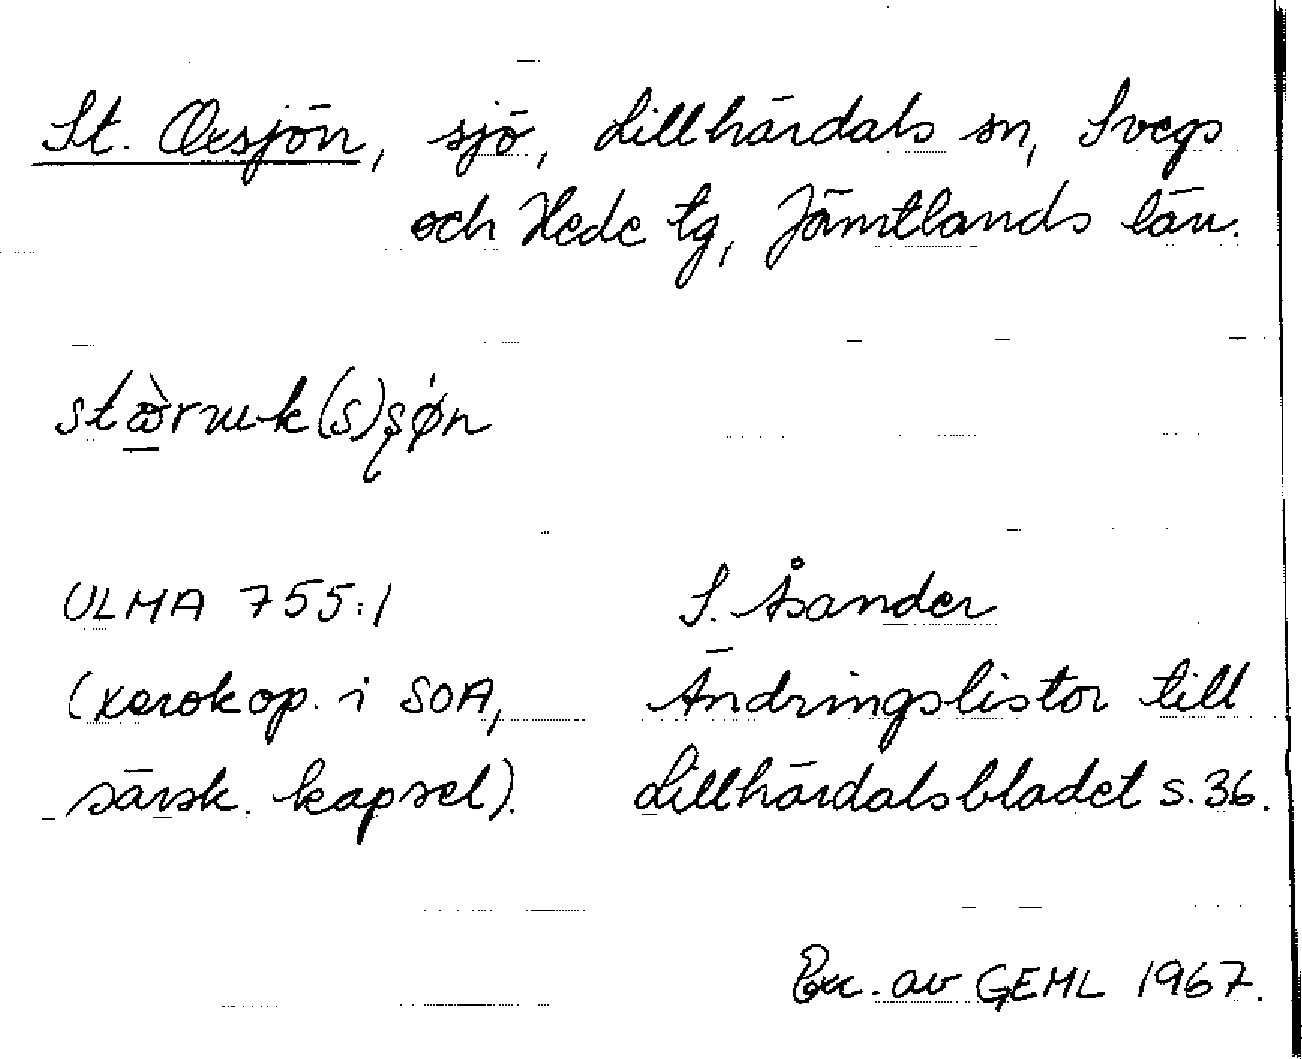 St. Oxsjön, sjö, Lillhärdals sn, Svegs
och Hede tg, Jämtlands län.
ULMA 755:1
(xerokop. i SOA,
särsk. kapsel).
S. Åsander
Ändringslistor till
Lillhärdalsbladet s. 36.
Exc. av GEML 1967.